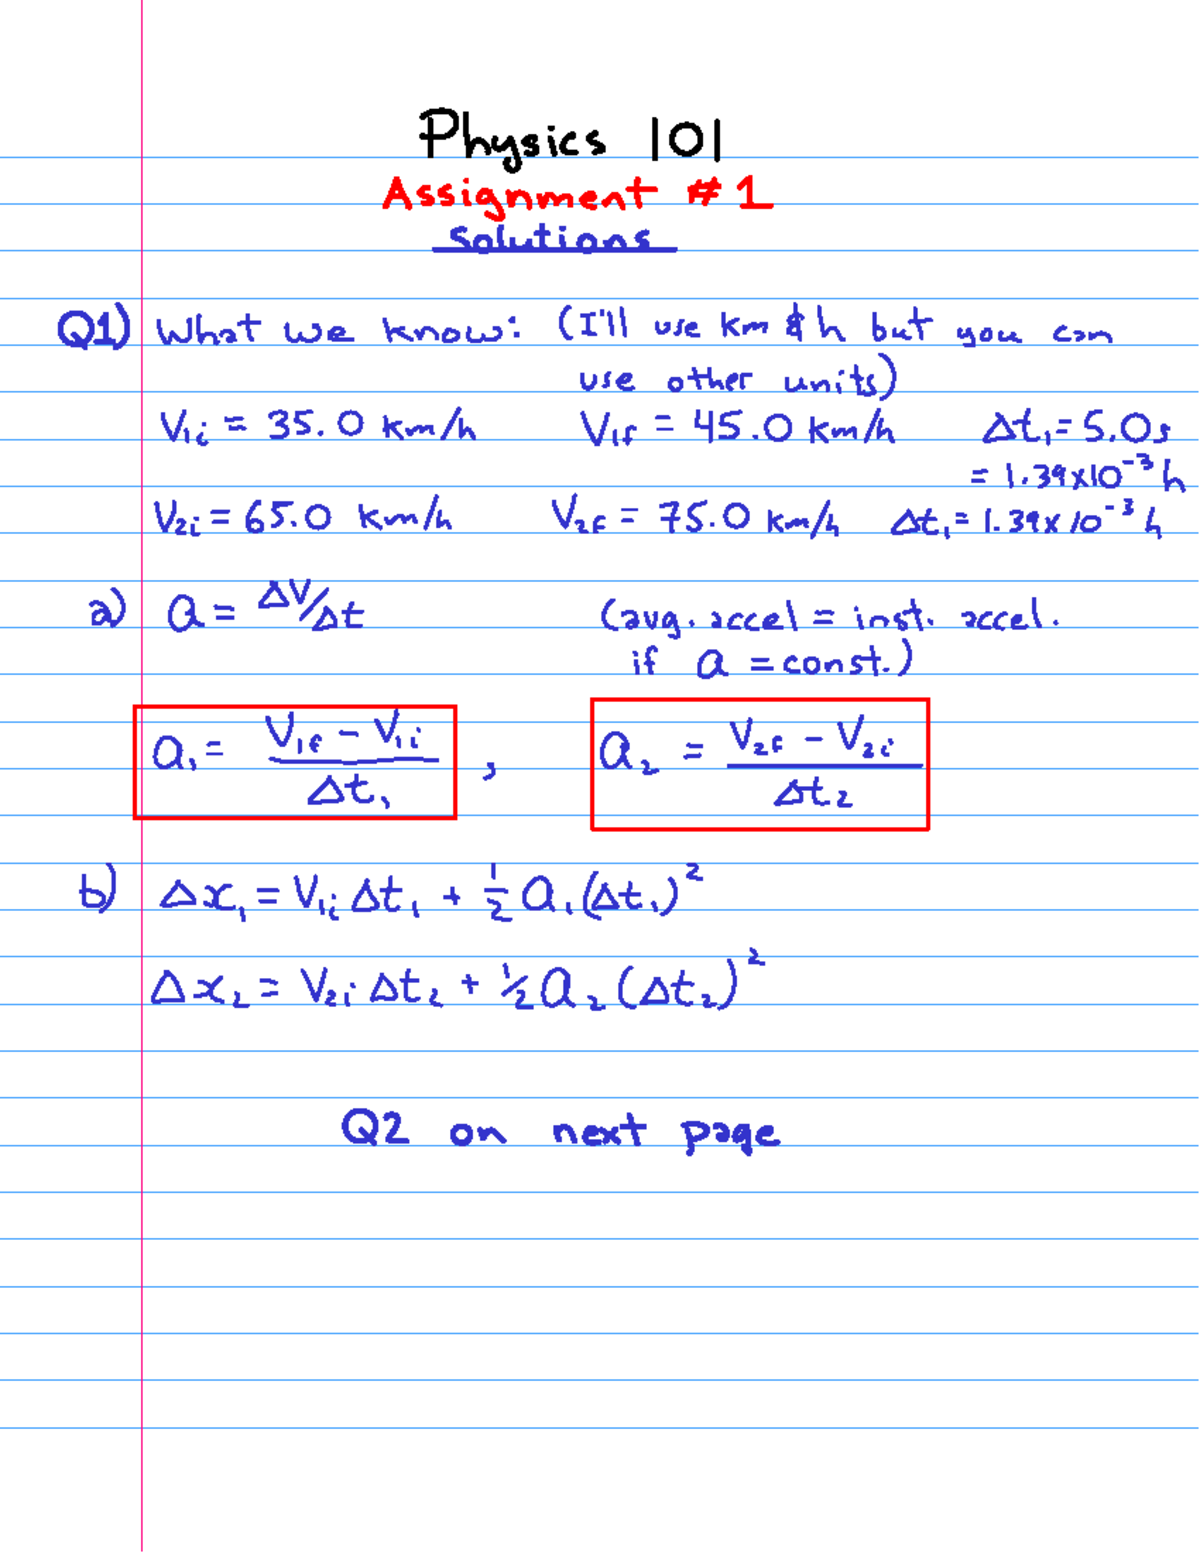 Physics 101
Assignment #1
Solutions
Q1) What we know: (I'll use km & h but you can
use other units)
V₁ᵢ = 35.0 km/h V₁f = 45.0 km/h Δt₁ = 5.0s
= 1.39x10⁻³ h
V₂ᵢ = 65.0 km/h V₂f = 75.0 km/h Δt₁ = 1.39x10⁻³ h
a) a = ΔV/Δt (avg. accel = inst. accel.
if a = const.)
a₁ = (V₁f - V₁ᵢ)/Δt₁ , a₂ = (V₂f - V₂ᵢ)/Δt₂
b) Δx₁ = V₁ᵢ Δt₁ + ½ a₁ (Δt₁)²
Δx₂ = V₂ᵢ Δt₂ + ½ a₂ (Δt₂)²
Q2 on next page